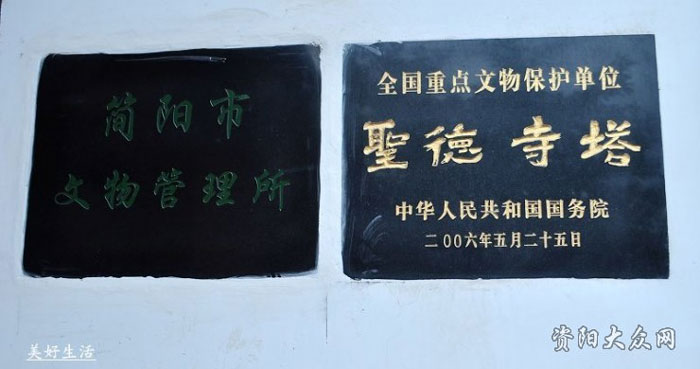 简阳市
文物管理所
全国重点文物保护单位
聖德寺塔
中华人民共和国国务院
二00六年五月二十五日
美好生活
资阳大众网